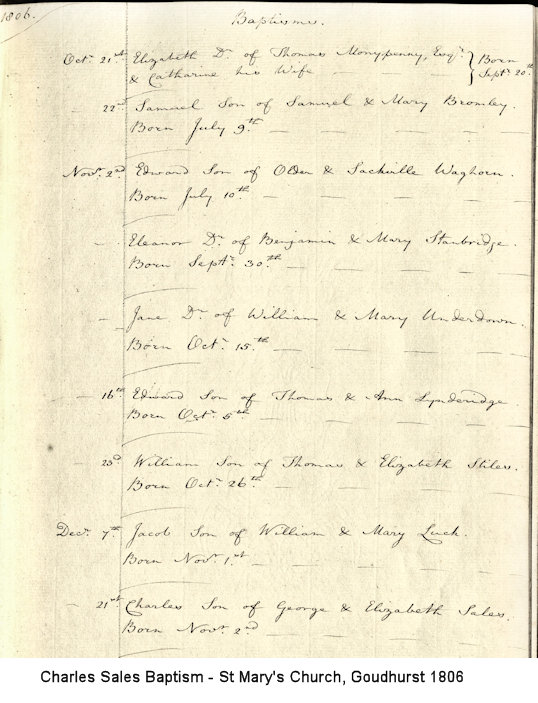 1806.
Baptisms.
Octr. 21st Elizabeth Dr. of Thomas Monypenny, Esqr. } Born
& Catharine his Wife — — — Septr. 20th
22nd Samuel Son of Samuel & Mary Bromley.
Born July 9th — — — — —
Novr. 2nd Edward Son of Older & Sackville Waghorn.
Born July 10th — — — — —
— Eleanor Dr. of Benjamin & Mary Stanbridge.
Born Septr. 30th — — — —
— Jane Dr. of William & Mary Underdown.
Born Octr. 15th — — — —
16th Edward Son of Thomas & Ann Lynderidge.
Born Octr. 5th — — — —
23d William Son of Thomas & Elizabeth Stiles.
Born Octr. 26th — — — —
Decr. 7th Jacob Son of William & Mary Luck.
Born Novr. 1st — — — — —
21st Charles Son of George & Elizabeth Sales.
Born Novr. 2nd — — — —
Charles Sales Baptism - St Mary's Church, Goudhurst 1806